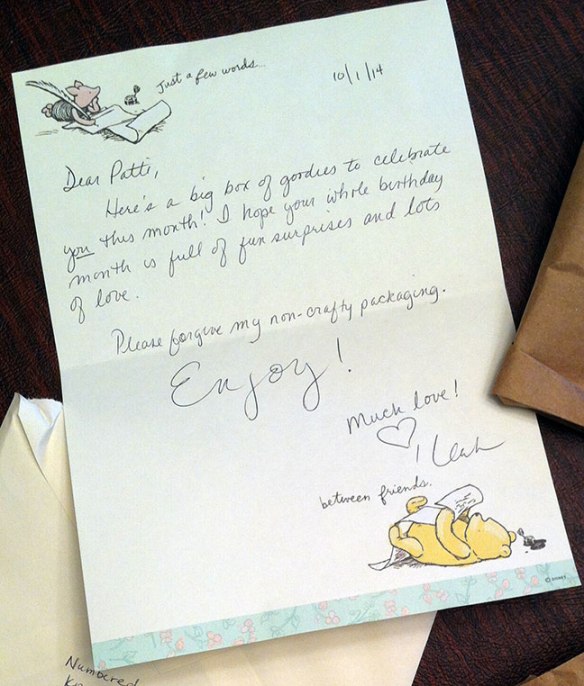 Just a few words...
10/1/14
Dear Patti,
Here's a big box of goodies to celebrate
you this month! I hope your whole birthday
month is full of fun surprises and lots
of love.
Please forgive my non-crafty packaging.
Enjoy!
Much love!
Leah
between friends.
© DISNEY
Numbered